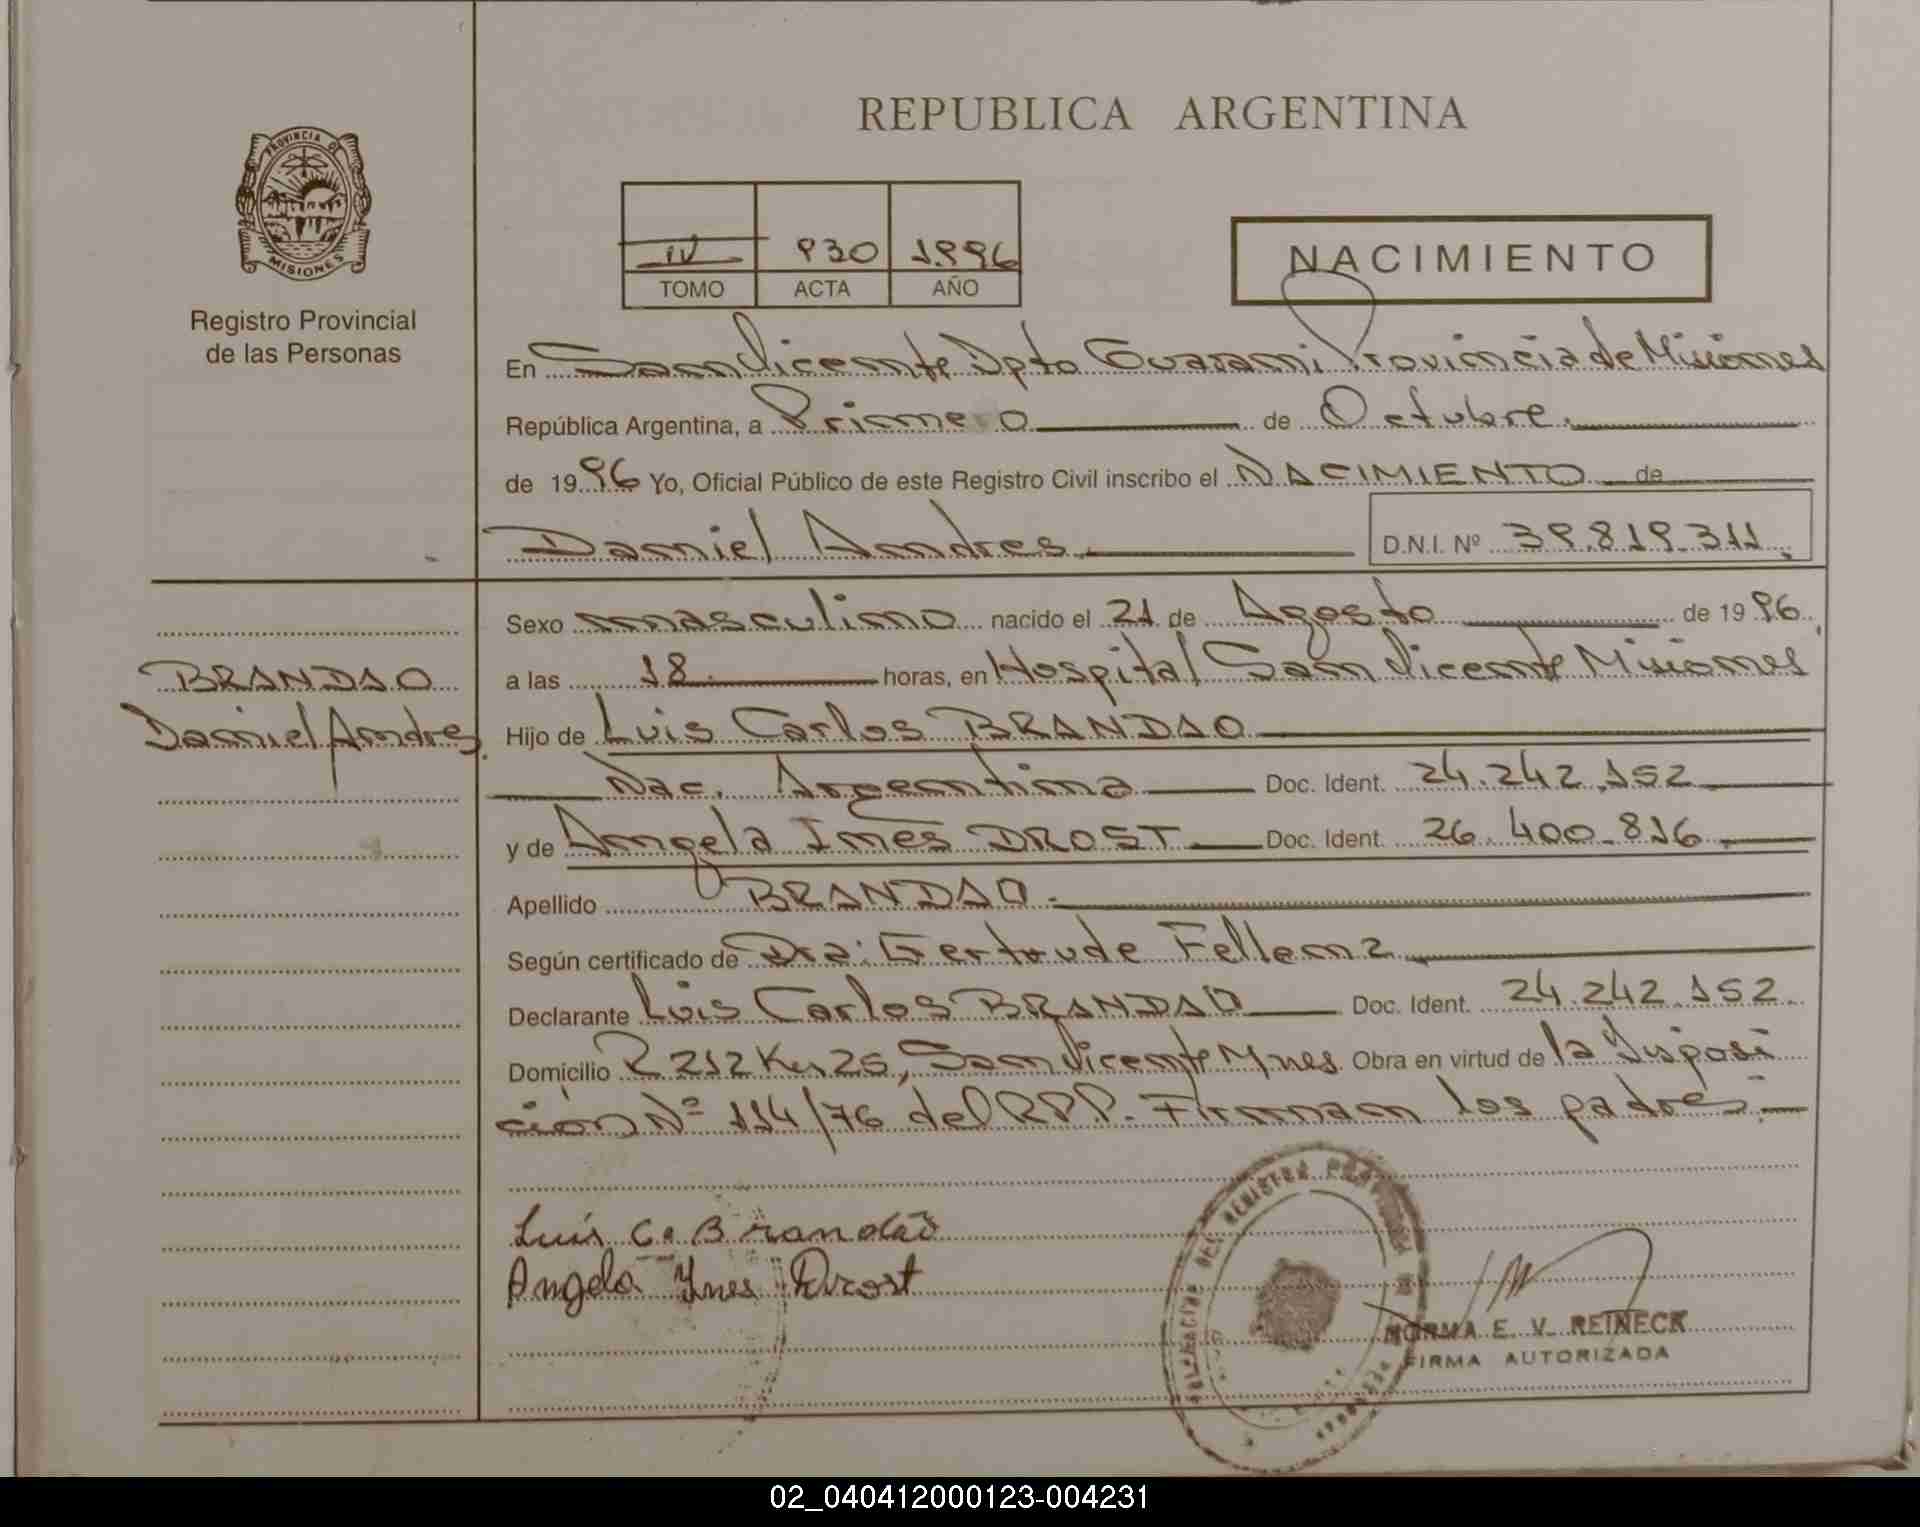 REPUBLICA ARGENTINA
PROVINCIA DE
MISIONES
Registro Provincial
de las Personas
IV 930 1996
TOMO ACTA AÑO
NACIMIENTO
En San Vicente Dpto Guarani Provincia de Misiones
República Argentina, a Primero de Octubre.
de 1996 Yo, Oficial Público de este Registro Civil inscribo el NACIMIENTO de
Daniel Andres. D.N.I. Nº 39.819.311.
Sexo masculino nacido el 21 de Agosto de 1996.
BRANDAO
Daniel Andres.
a las 18. horas, en Hospital San Vicente Misiones
Hijo de Luis Carlos BRANDAO
Nac. Argentina Doc. Ident. 24.242.152
y de Angela Ines DROST Doc. Ident. 26.400.816.
Apellido BRANDAO.
Según certificado de Dra: Gertrude Fellenz.
Declarante Luis Carlos BRANDAO Doc. Ident. 24.242.152
Domicilio R 212 Km 25, San Vicente Mnes. Obra en virtud de la Disposi
ción Nº 114/76 del RPP. Firman los padres.
Luis C. Brandão
Angela Ynes Drost
NORMA E. V. REINECK
FIRMA AUTORIZADA
02_040412000123-004231